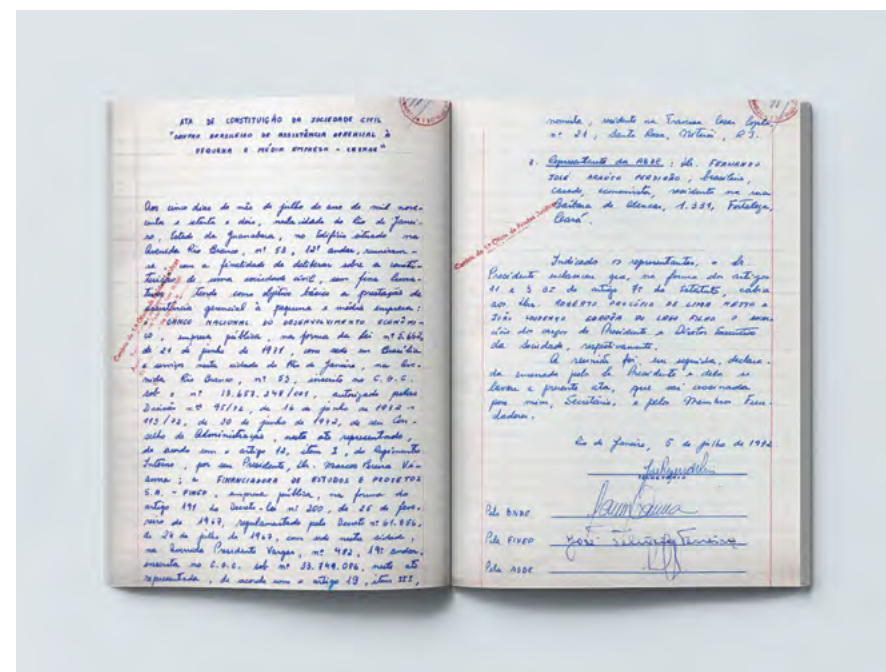 ATA DE CONSTITUIÇÃO DA SOCIEDADE CIVIL
"CENTRO BRASILEIRO DE ASSISTÊNCIA GERENCIAL À
PEQUENA E MÉDIA EMPRESA - CEBRAE"
Aos cinco dias do mês de julho do ano de mil nove-
centos e setenta e dois, nesta cidade do Rio de Janei-
ro, Estado da Guanabara, no Edifício situado na
Avenida Rio Branco, nº 53, 12º andar, reuniram-
se com a finalidade de deliberar sobre a consti-
tuição de uma sociedade civil, sem fins lucra-
tivos, tendo como objetivo básico a prestação de
assistência gerencial à pequena e média empresa:
o BANCO NACIONAL DO DESENVOLVIMENTO ECONÔMI-
CO, empresa pública, na forma da Lei nº 5.662,
de 21 de junho de 1971, com sede em Brasília
e serviços nesta cidade do Rio de Janeiro, na Ave-
nida Rio Branco, nº 53, inscrito no C.G.C.
sob o nº autorizado pelas
Decisão nº 95/72, de 16 de junho de 1972 e
113/72, de 30 de junho de 1972, de seu Con-
selho de Administração, neste ato representado,
de acordo com o artigo 12, item I, do Regimento
Interno, por seu Presidente, Sr. Marcos Pereira Vi-
anna; a FINANCIADORA DE ESTUDOS E PROJETOS
S.A. - FINEP, empresa pública, na forma do
artigo 191 do Decreto-Lei nº 200, de 25 de feve-
reiro de 1967, regulamentado pelo Decreto nº 61.056,
de 24 de julho de 1967, com sede nesta cidade,
na Avenida Presidente Vargas, nº 482, 19º andar,
inscrita no C.G.C. sob nº 33.749.086, neste ato
representada, de acordo com o artigo 19, item III,
Cartório do 1º Ofício de
nomista, residente na Travessa
nº 21, Santa Rosa, Niterói, RJ.
Representante da ABDE: Sr. FERNANDO
JOSÉ ARAÚJO PERDIGÃO, brasileiro,
casado, economista, residente na rua
Bárbara de Alencar, 1.339, Fortaleza,
Ceará.
Cartório do 1º Ofício de
Indicados os representantes, o Sr.
Presidente esclareceu que, na forma dos artigos
11 e § 02 do artigo 9º do Estatuto, cabia
aos Srs. ROBERTO PROCÓPIO DE LIMA NETTO e
JOÃO DE LAGO FILHO o exer-
cício dos cargos de Presidente e Diretor Executivo
da Sociedade, respectivamente.
A reunião foi, em seguida, declara-
da encerrada pelo Sr. Presidente e dela se
lavrou a presente ata, que vai assinada
por mim, Secretário, e pelos Membros Fun-
dadores.
Rio de Janeiro, 5 de julho de 1972
SECRETÁRIO
Pelo BNDE
Pela FINEP José Ferreira
Pela ABDE